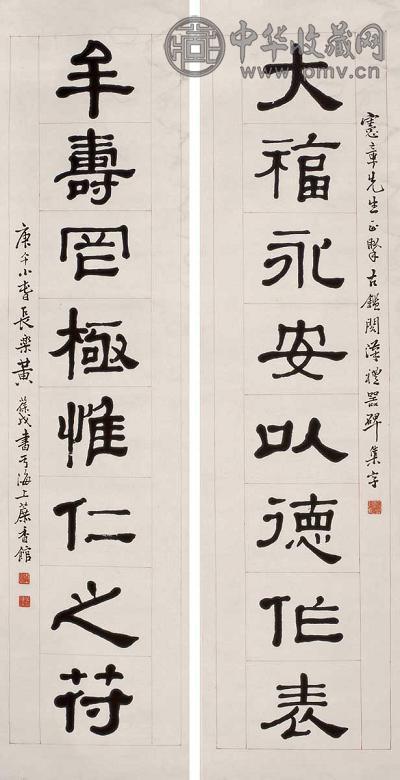 中华收藏网
www.pmv.cn
憲章先生正 古鑑閣漢禮器碑集字
大福永安以德作表
牟壽罔極惟仁之符
庚午小旾長樂黃葆戉書于海上蔗香館